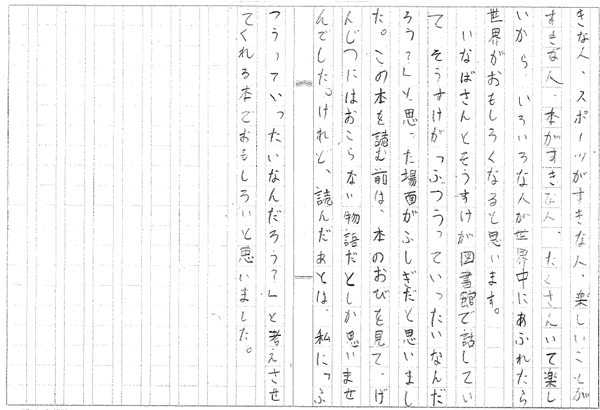 きな人、スポーツがすきな人、楽しいことが
すきな人、本がすきな人、たくさんいて楽し
いから、いろいろな人が世界中にあふれたら
世界がおもしろくなると思います。
　いなばさんとそうすけが図書館で話してい
て、そうすけが「ふつうっていったいなんだ
ろう？」と思った場面がふしぎだと思いまし
た。この本を読む前は、本のおびを見て、げ
んじつにはおこらない物語だとしか思いませ
んでした。けれど、読んだあとは、私に「ふ
つうっていったいなんだろう？」と考えさせ
てくれる本でおもしろいと思いました。